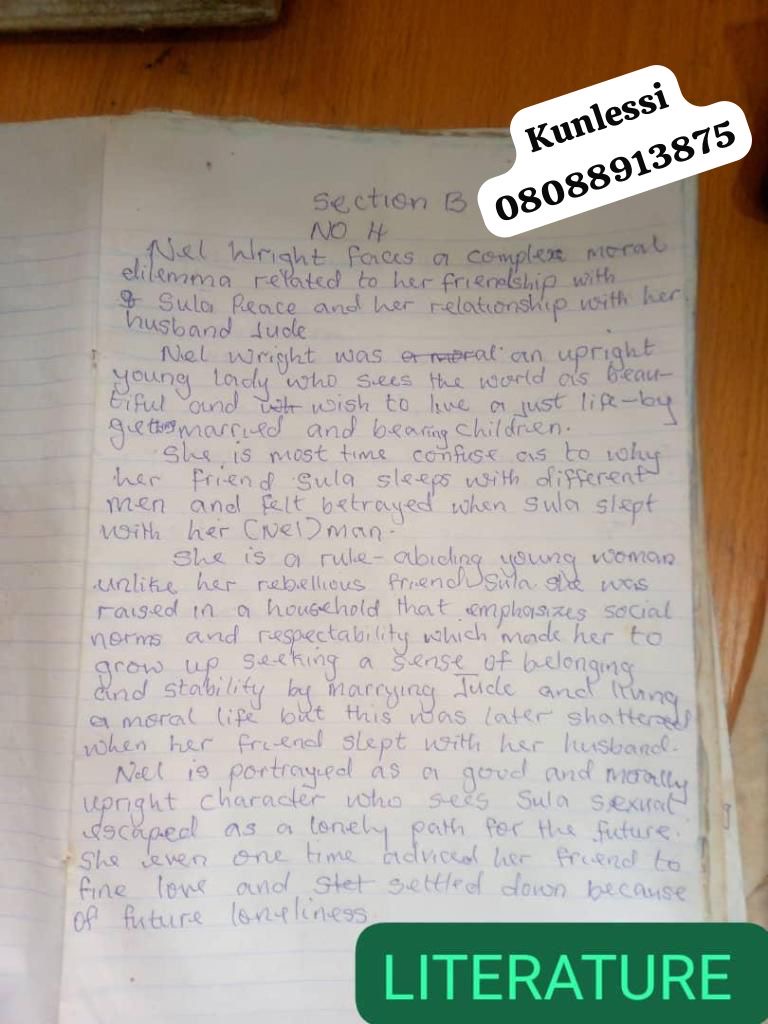 Kunlessi
08088913875
Section B
NO 4
Nel Wright faces a complex moral
dilemma related to her friendship with
Sula Peace and her relationship with her
husband Jude
Nel Wright was a moral an upright
young lady who sees the world as beau-
tiful and wish to live a just life-by
getting married and bearing children.
She is most time confuse as to why
her friend Sula sleeps with different
men and felt betrayed when Sula slept
with her (Nel) man.
She is a rule-abiding young woman
unlike her rebellious friend Sula she was
raised in a household that emphasizes social
norms and respectability which made her to
grow up seeking a sense of belonging
and stability by marrying Jude and living
a moral life but this was later shattered
when her friend slept with her husband.
Nel is portrayed as a good and morally
upright character who sees Sula sexual
escaped as a lonely path for the future.
She even one time adviced her friend to
fine love and settled down because
of future loneliness
LITERATURE